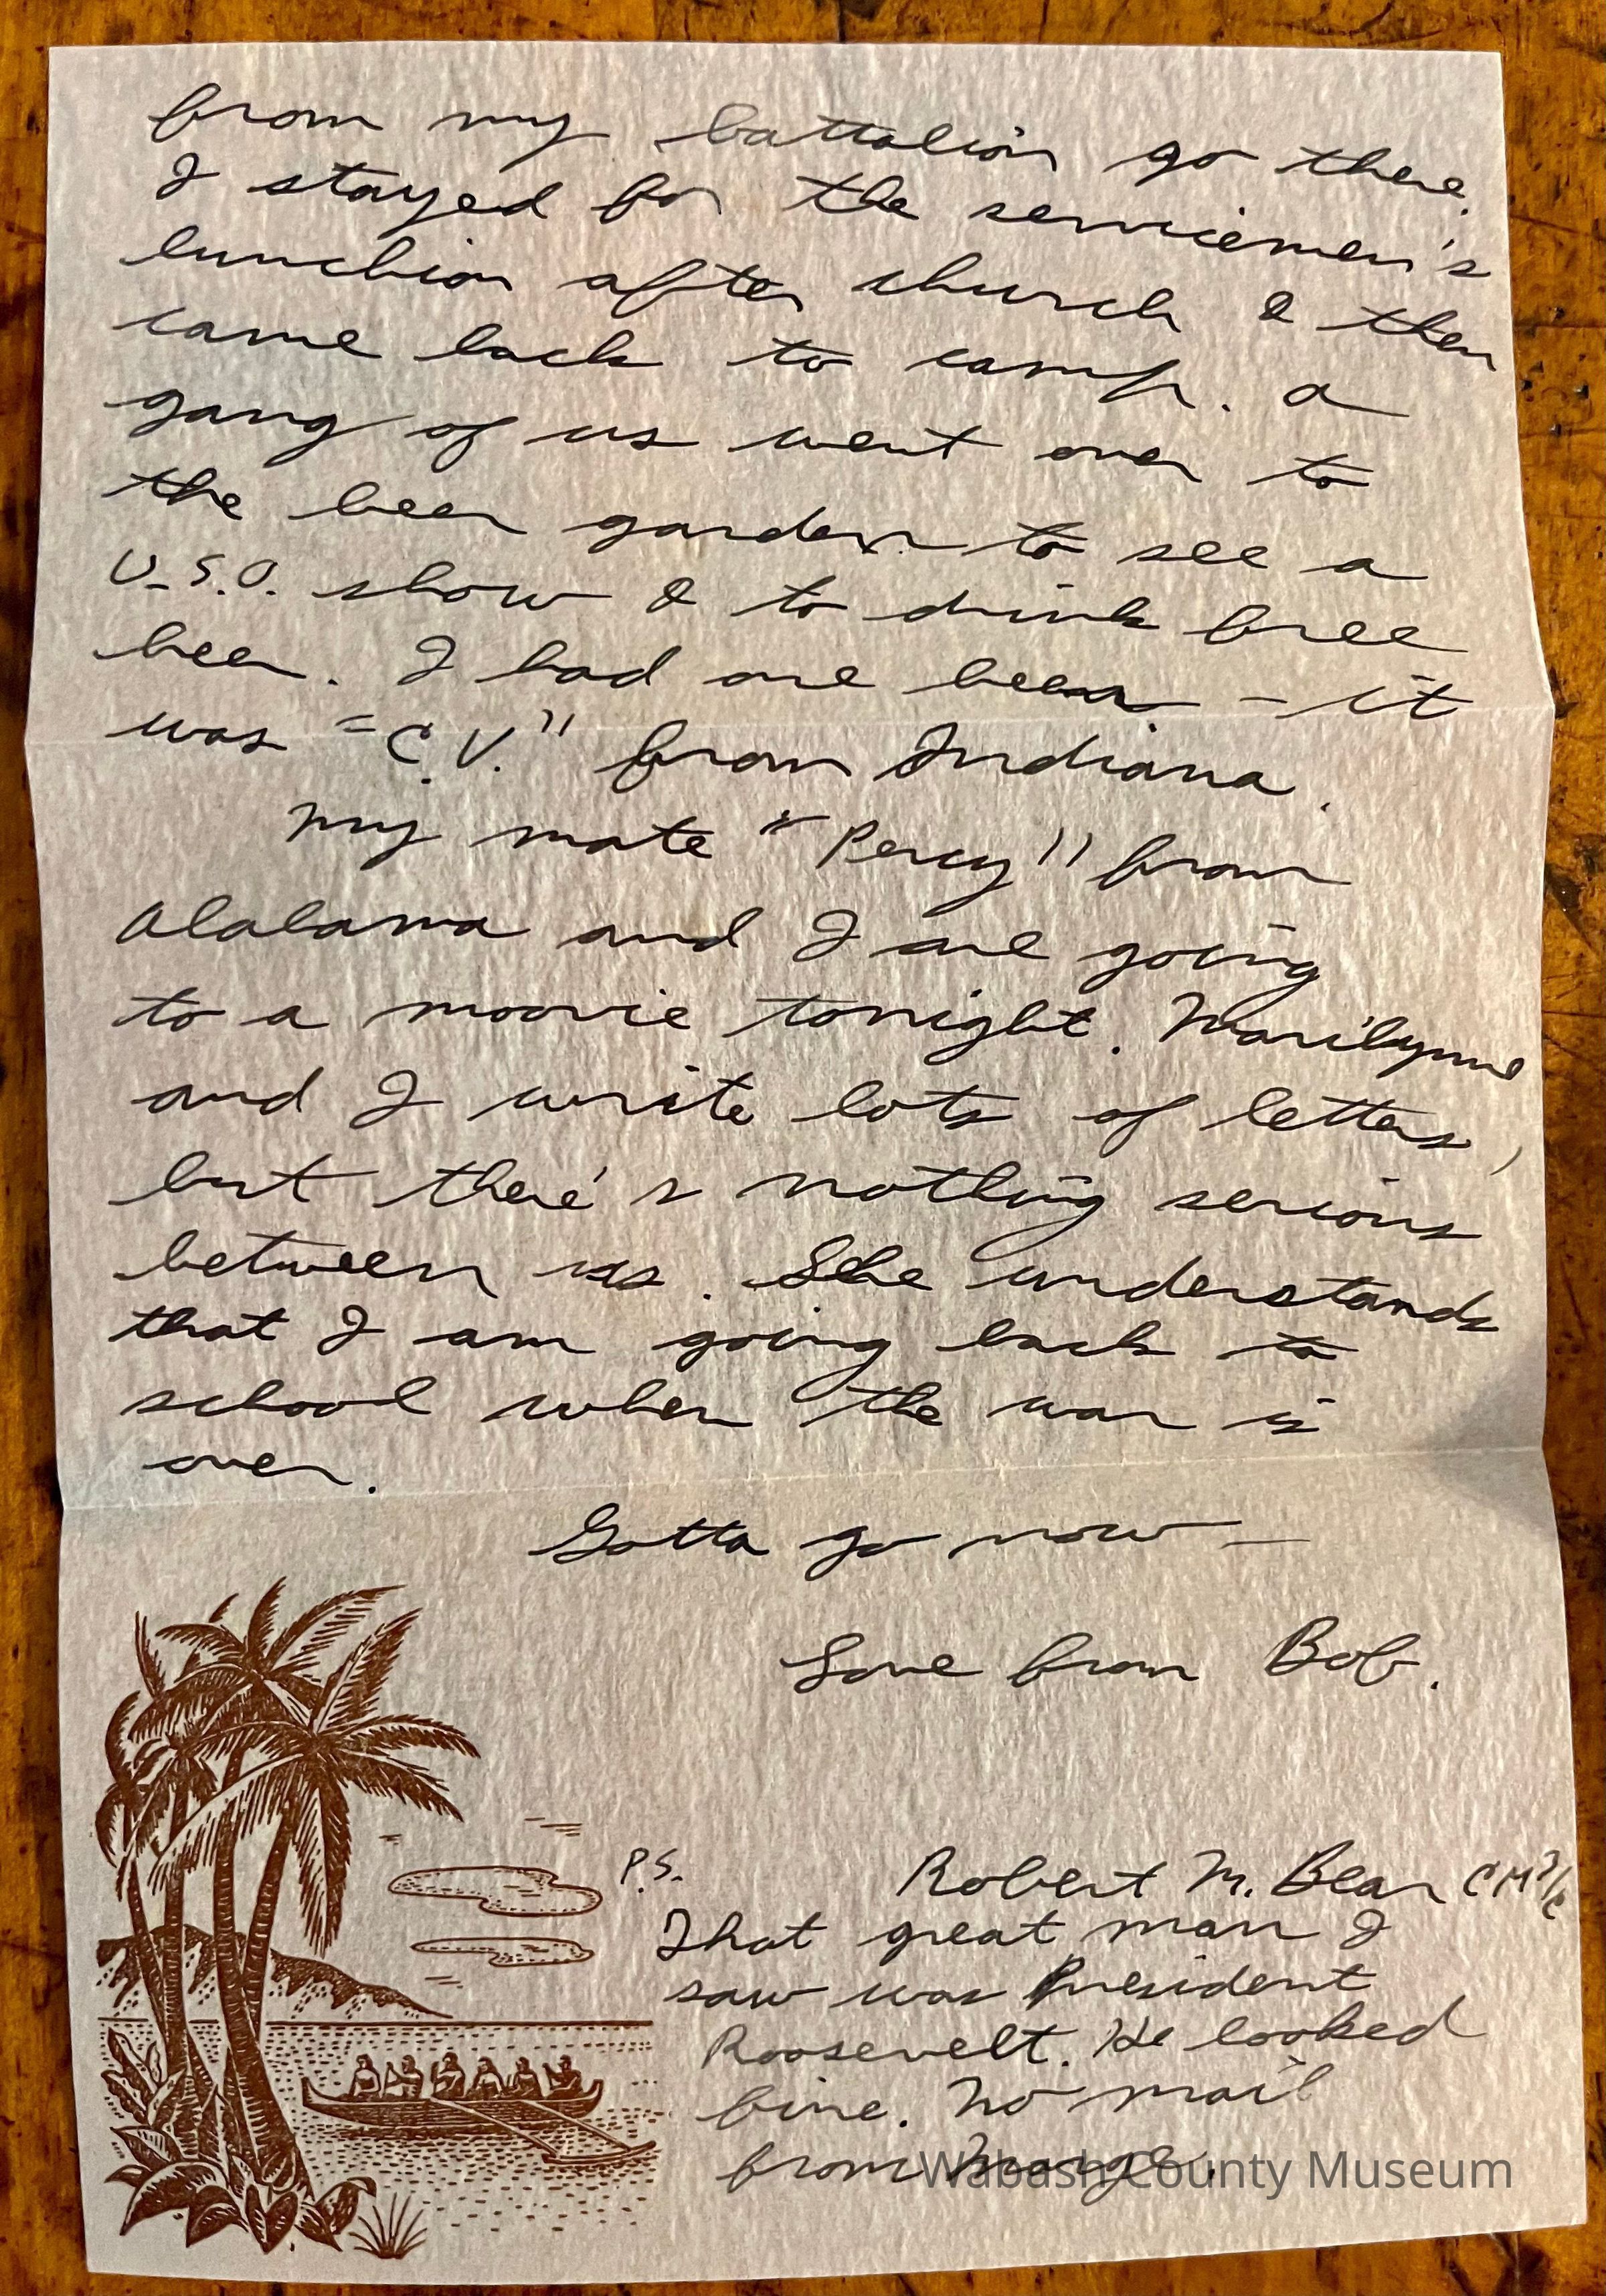 from my battalion go there.
I stayed for the servicemen's
lunchion after church & then
came back to camp. A
gang of us went over to
the beer garden to see a
U.S.O. show & to drink free
beer. I had one beer - it
was "C.V." from Indiana.
My mate "Percy" from
Alabama and I are going
to a moovie tonight. Marilynne
and I write lots of letters,
but there's nothing serious
between us. She understands
that I am going back to
school when the war is
over.
Gotta go now -
Love from Bob.
P.S. Robert M. Bear CM3/c
That great man I
saw was President
Roosevelt. He looked
fine. No mail
from Marge.
Wabash County Museum